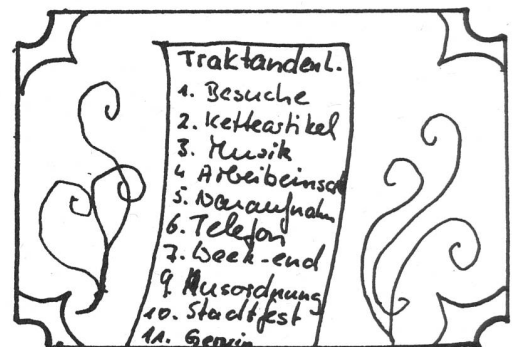 Traktandenl.
1. Besuche
2. Ketteartikel
3. Musik
4 Arbeibeinsat
5. Neuaufnahm
6. Telefon
7. Week-end
9 Ausordnung
10. Stadtfest
11.